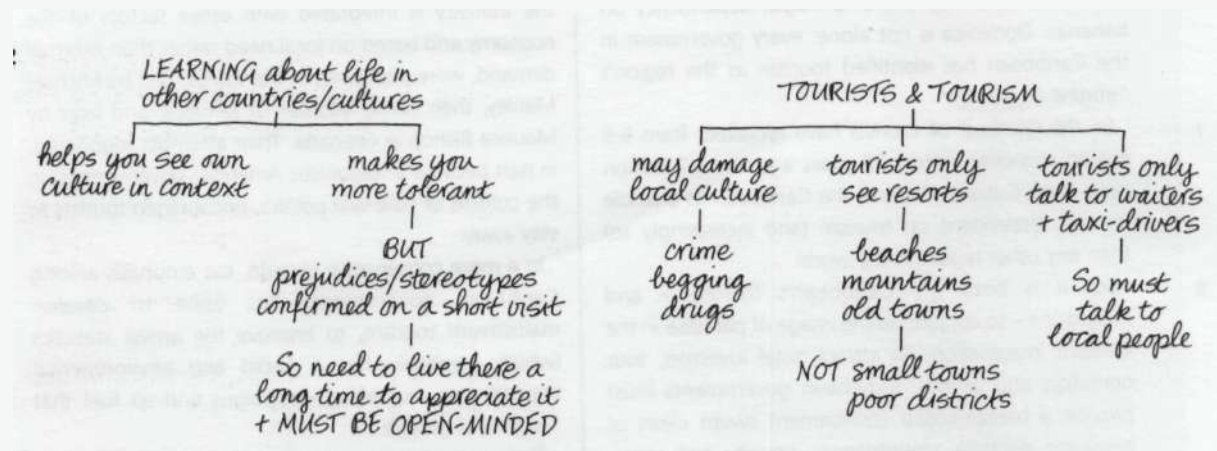 LEARNING about life in
other countries/cultures
helps you see own
culture in context
makes you
more tolerant
BUT
prejudices/stereotypes
confirmed on a short visit
So need to live there a
long time to appreciate it
+ MUST BE OPEN-MINDED
TOURISTS & TOURISM
may damage
local culture
crime
begging
drugs
tourists only
see resorts
beaches
mountains
old towns
NOT small towns
poor districts
tourists only
talk to waiters
+ taxi-drivers
So must
talk to
local people